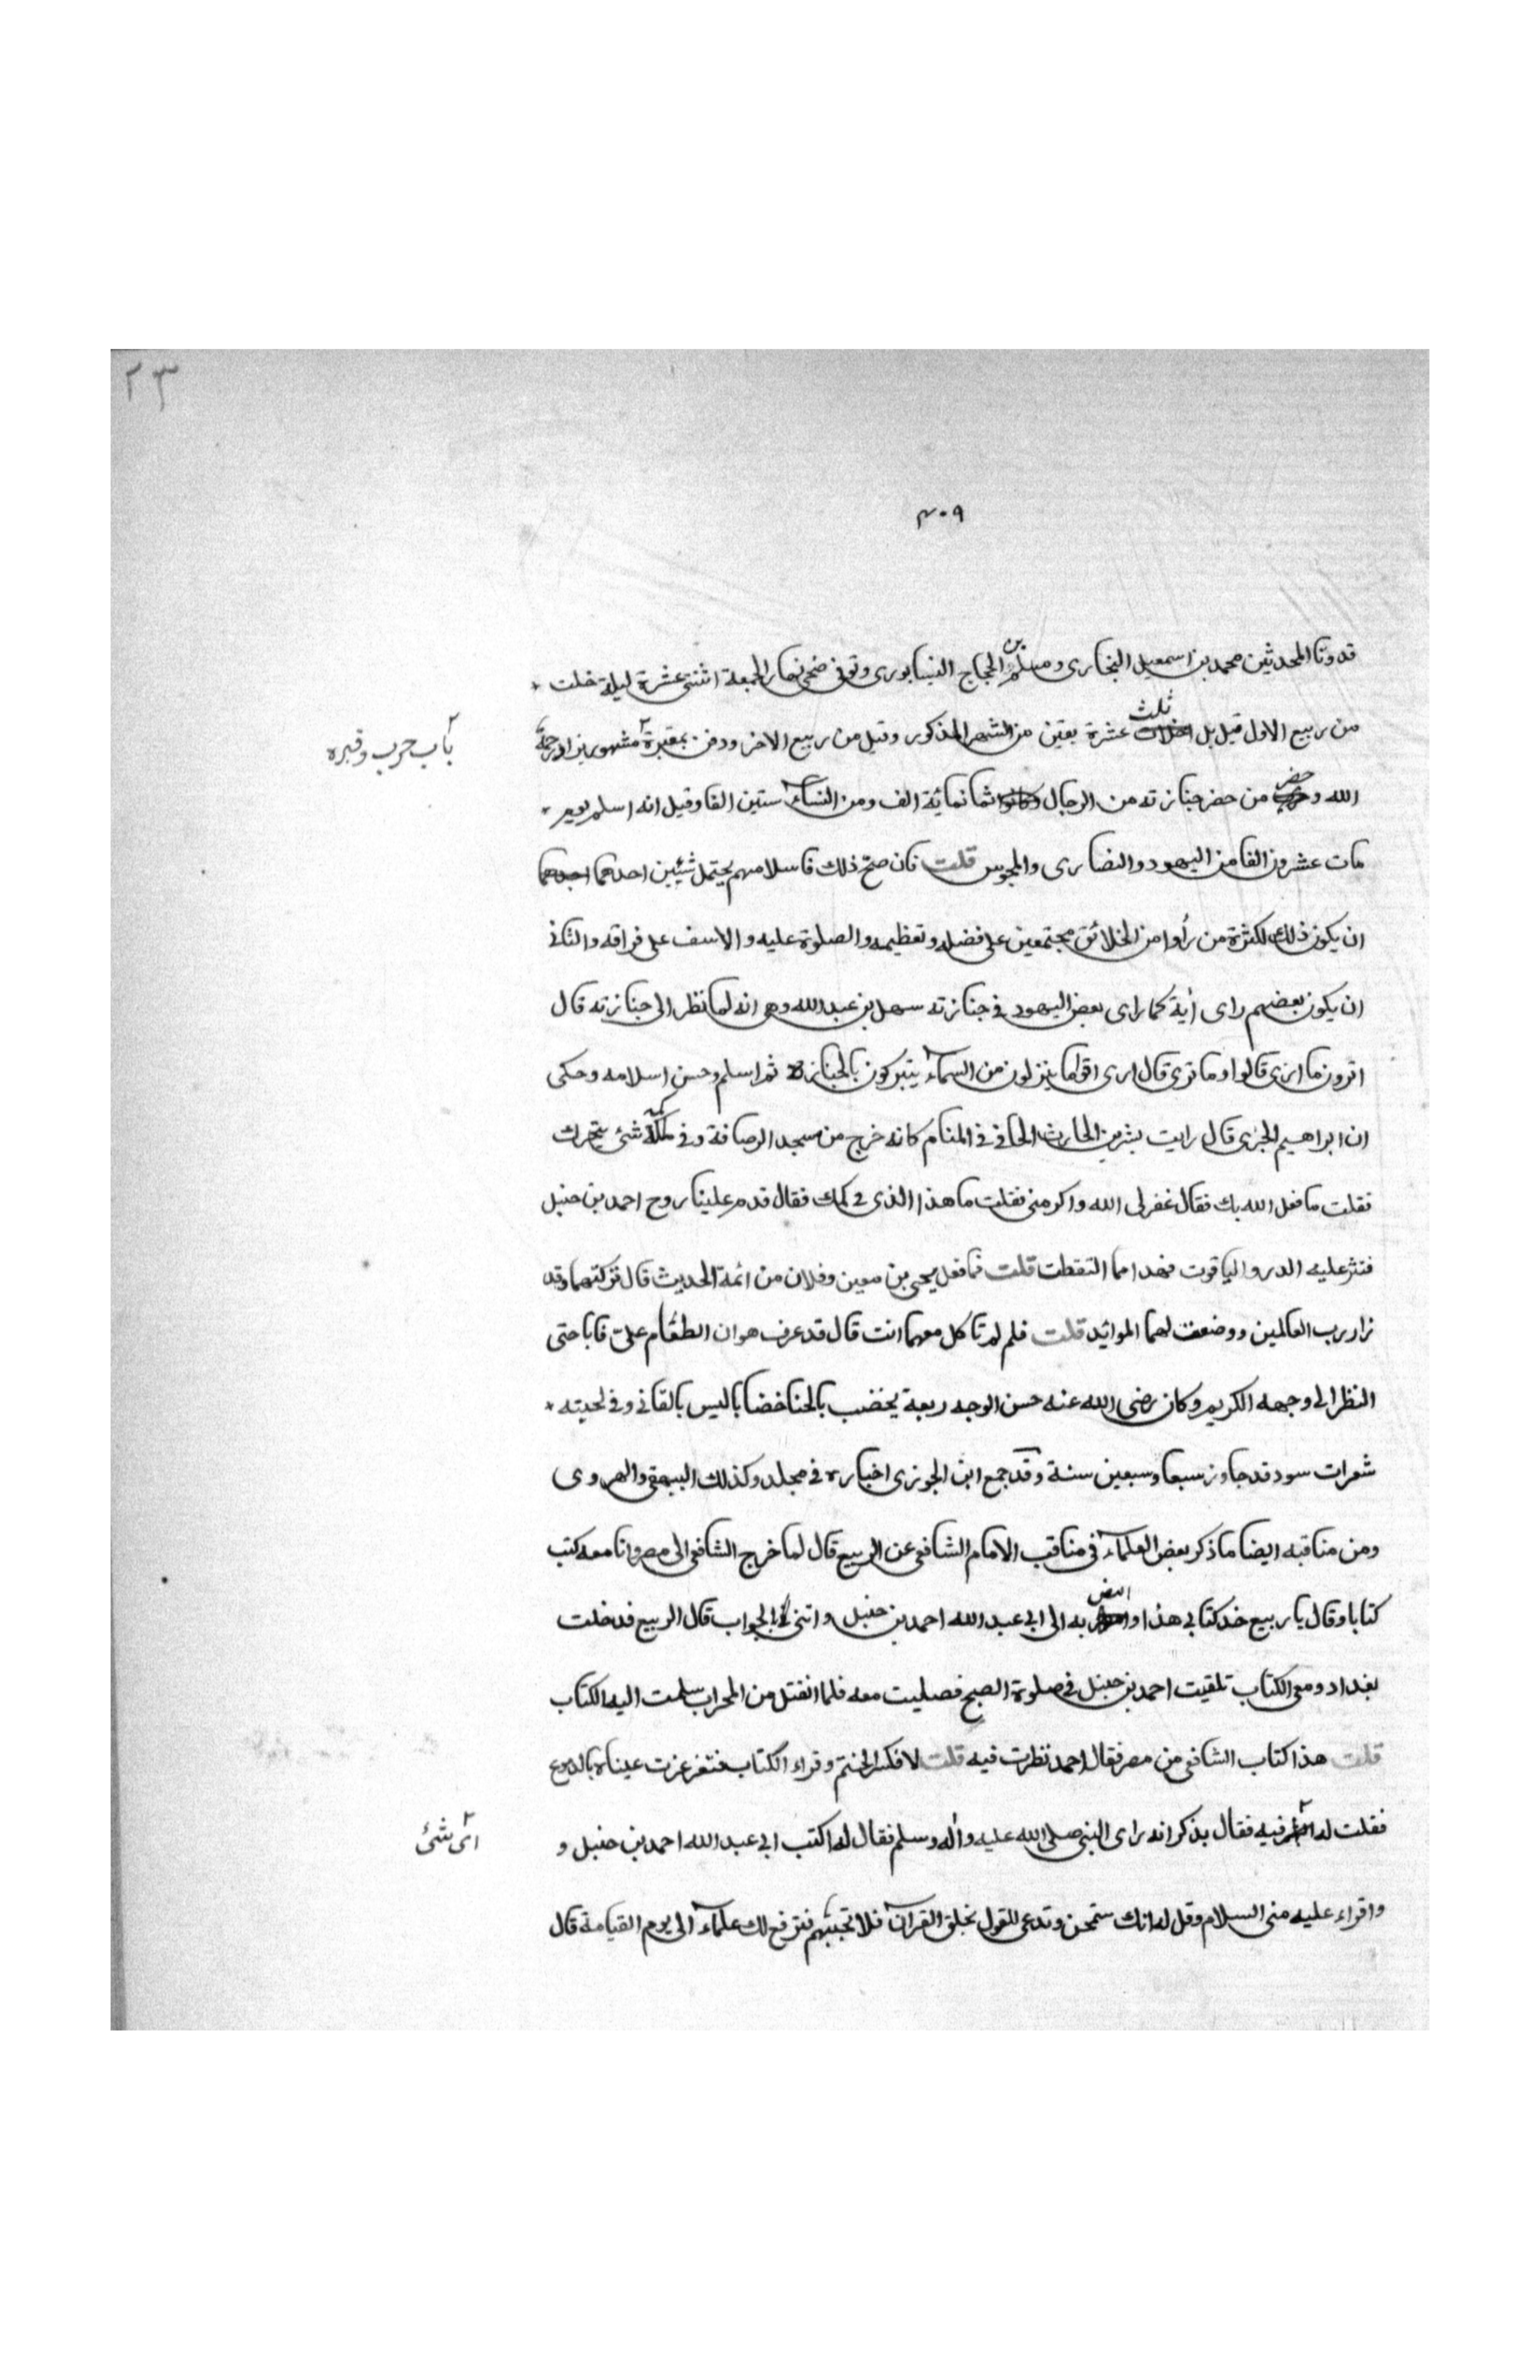 ٢٣
٣٠٩
قدوتا المحدثين محمد بن اسمعيل البخاري ومسلم بن الحجاج النيسابوري وتوفى ضحى نهار الجمعة اثنتى عشرة ليلة خلت
من ربيع الاول قيل بل ثلث عشرة بقين من الشهر المذكور وقيل من ربيع الاخر ودفن بمقبرة مشهور يزار رحمة
باب حرب وقبره
الله و حضر من حضر جنازته من الرجال وكانوا ثمانمائة الف ومن النساء ستين الفا وقيل انه اسلم يوم
مات عشرون الفا من اليهود والنصارى والمجوس قلت فان صح ذلك فاسلامهم يحتمل شيئين احدهما احدهما
ان يكون ذلك لكثرة من رأوا من الخلائق مجتمعين على فضله وتعظيمه والصلوة عليه والاسف على فراقه والثانى
ان يكون بعضهم راى أية كما راى بعض اليهود فى جنازته سهل بن عبد الله وهى انه لما نظر الى جنازته قال
اترون ما ارى قالوا وما ترى قال ارى اقواما ينزلون من السماء يتبركون بالجنازة ثم اسلم وحسن اسلامه وحكى
ان ابراهيم الحربى قال رايت بشر بن الحارث الحافى فى المنام كانه خرج من مسجد الرصافة وفى كمه شئ يتحرك
فقلت ما فعل الله بك فقال غفر لى الله واكرمنى فقلت ما هذا الذى فى كمك فقال قدم علينا روح احمد بن حنبل
فنثر عليه الدر والياقوت فهذا مما التقطت قلت فما فعل يحيى بن معين وفلان من ائمة الحديث قال تركتهما وقد
زارا رب العالمين ووضعت لهما الموائد قلت فلم لم تاكل معهما انت قال قد عرف هوان الطعام على فاباحنى
النظر الى وجهه الكريم وكان رضى الله عنه حسن الوجه ربعة يخضب بالحنا خضابا ليس بالقانى وفى لحيته
شعرات سود قد جاوز سبعا وسبعين سنة وقد جمع ابن الجوزى اخباره فى مجلد وكذلك البيهقى والهروى
ومن مناقبه ايضا ما ذكر بعض العلماء فى مناقب الامام الشافعى عن الربيع قال لما خرج الشافعى الى مصر وانا معه كتب
كتابا وقال يا ربيع خذ كتابى هذا و امض به الى ابى عبد الله احمد بن حنبل واتنى بالجواب قال الربيع فدخلت
بغداد ومعى الكتاب تلقيت احمد بن حنبل فى صلوة الصبح فصليت معه فلما انفتل من المحراب سلمت اليه الكتاب
قلت هذا كتاب الشافعى من مصر فقال احمد نظرت فيه قلت لا فكسر الختم وقراء الكتاب فتغرغرت عيناه بالدموع
فقلت له فيه فقال يذكر انه راى النبى صلى الله عليه واله وسلم فقال له اكتب ابى عبد الله احمد بن حنبل و
اى شئ
واقراء عليه منى السلام وقل له انك ستمحن وتدعى للقول بخلق القران فلا تجبهم فنرفع لك علماء الى يوم القيامة قال